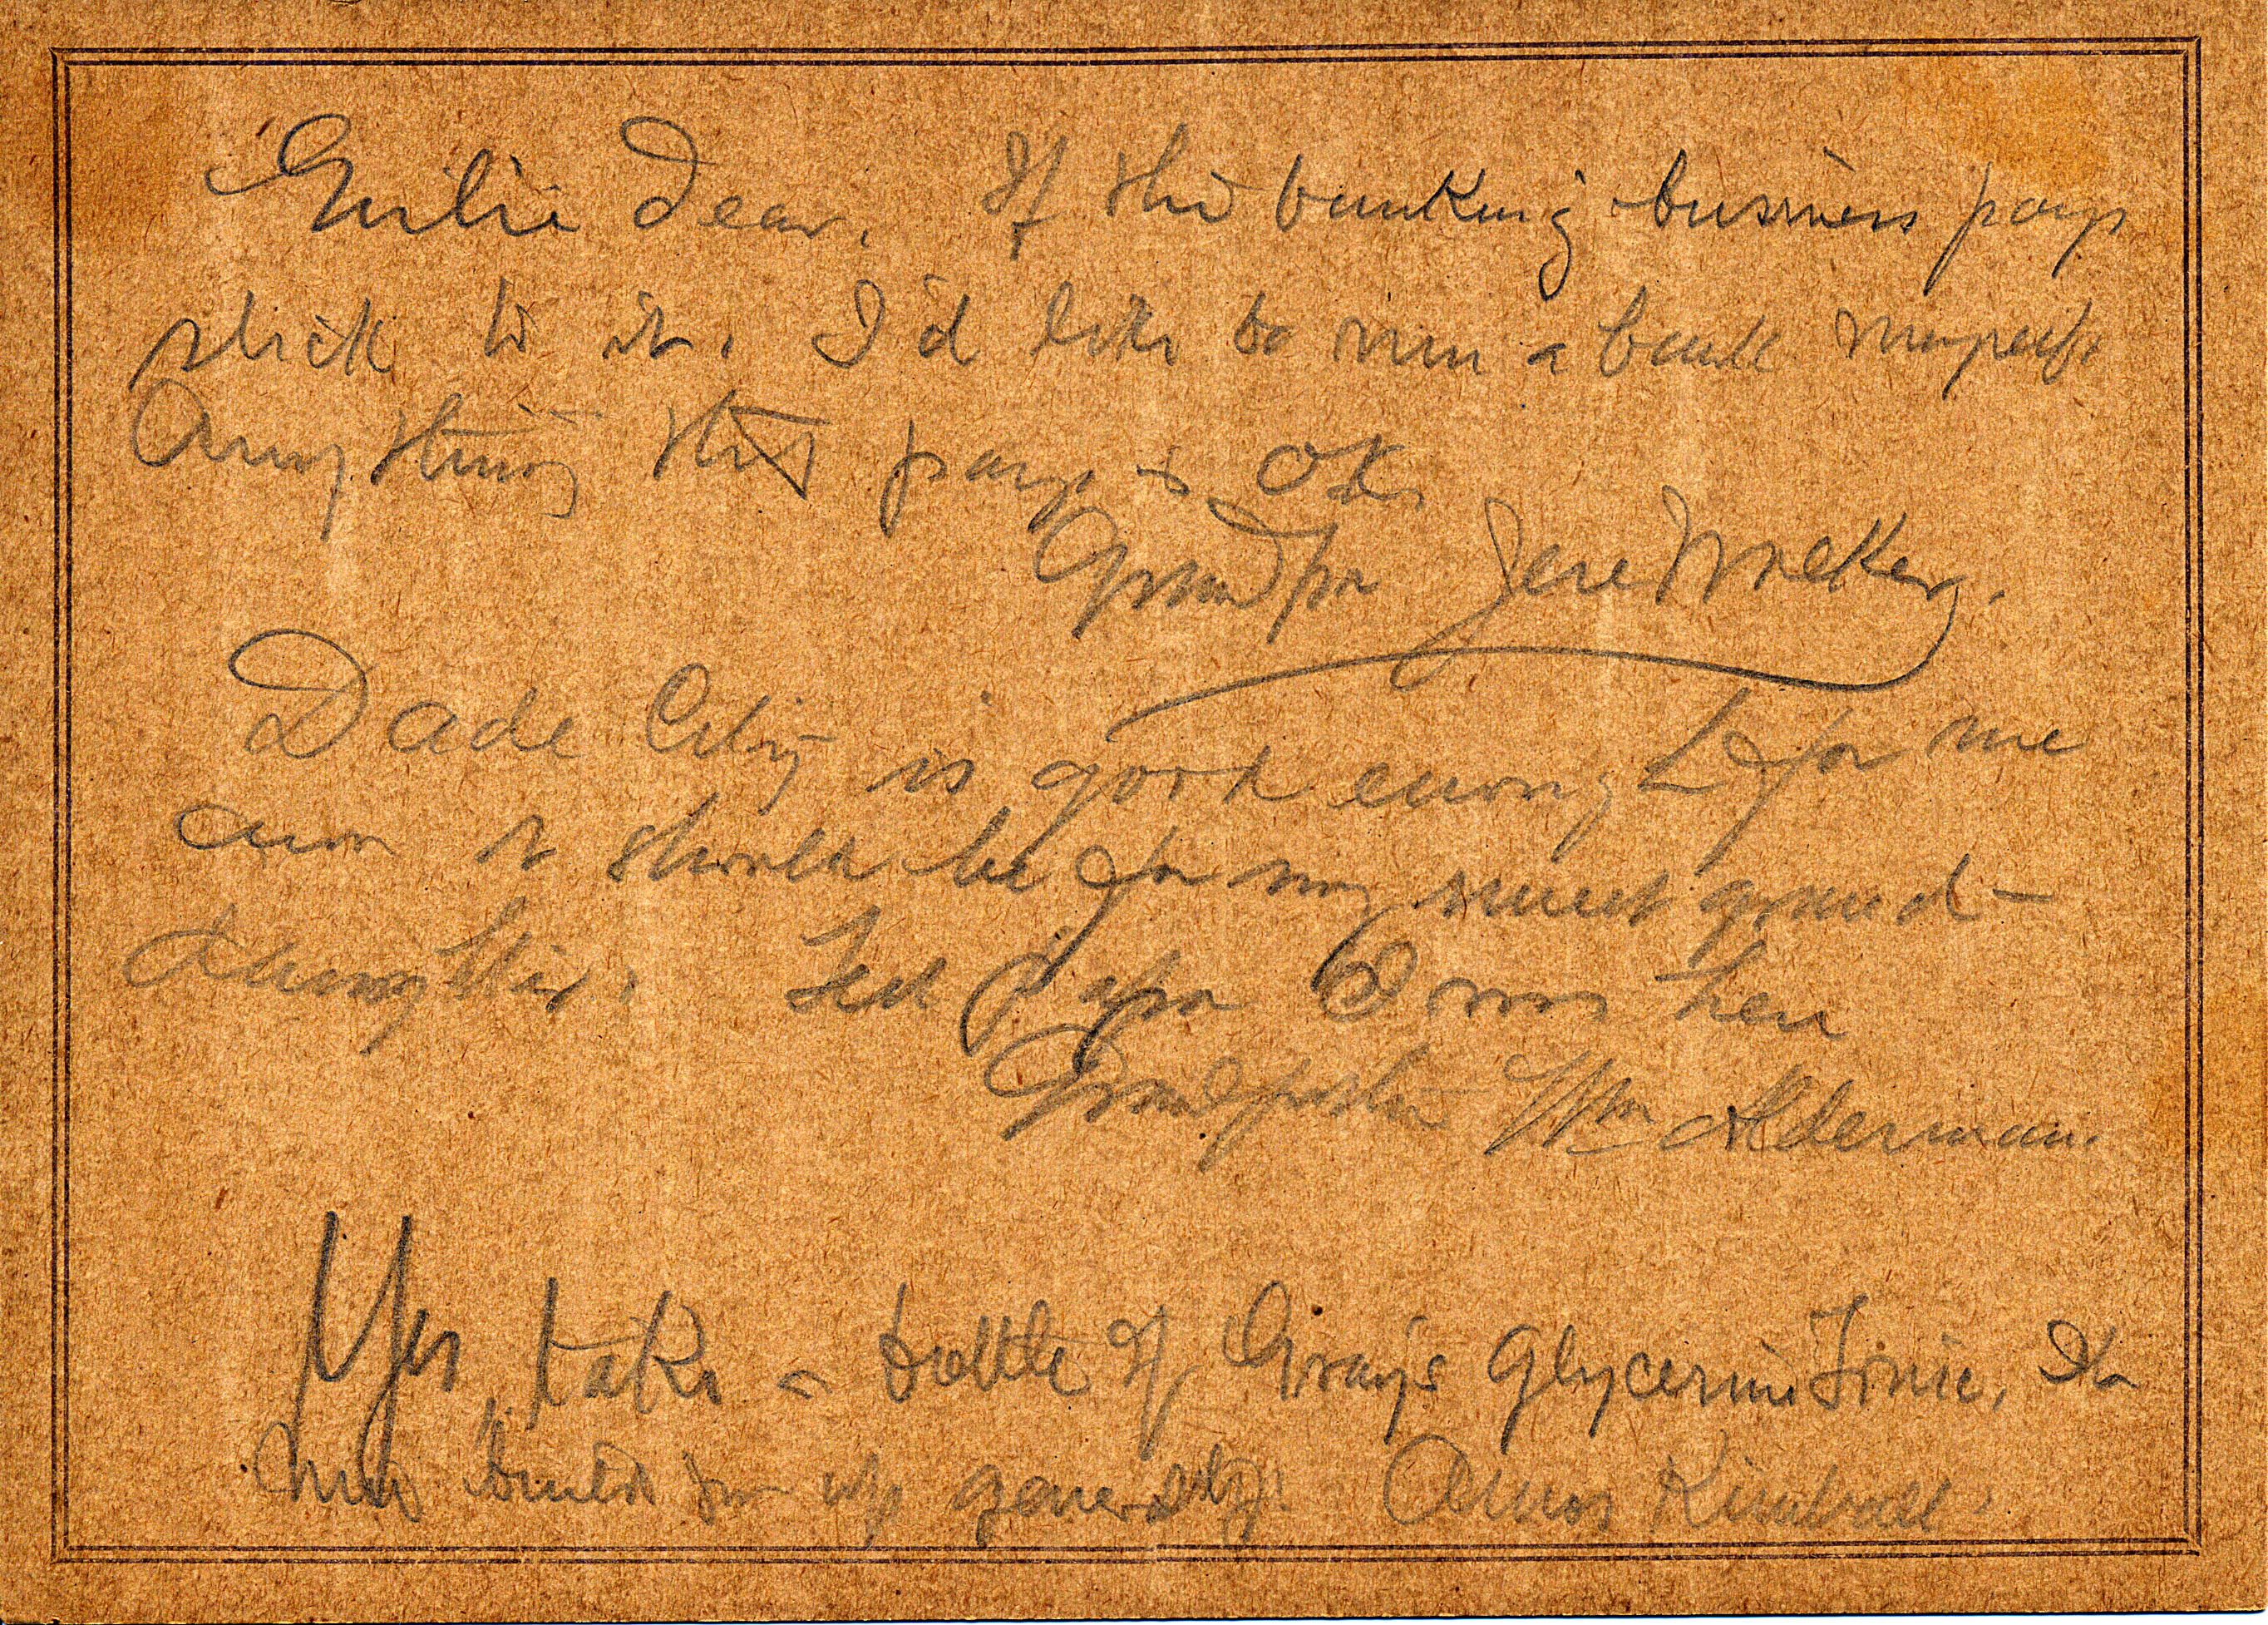 Emilie Dear. If the banking business pays
stick to it. I'd like to run a bank myself.
Anything that pays is OK.
Grandpa Jere Walker.
Dade City is good enough for me
and it should be for my sweet grand-
daughter. Tell papa Enos hen
Grandfather Wm Alderman.
Yes, take a bottle of Grays Glycerine Tonic. It
will build you up generally. Amos Kimball